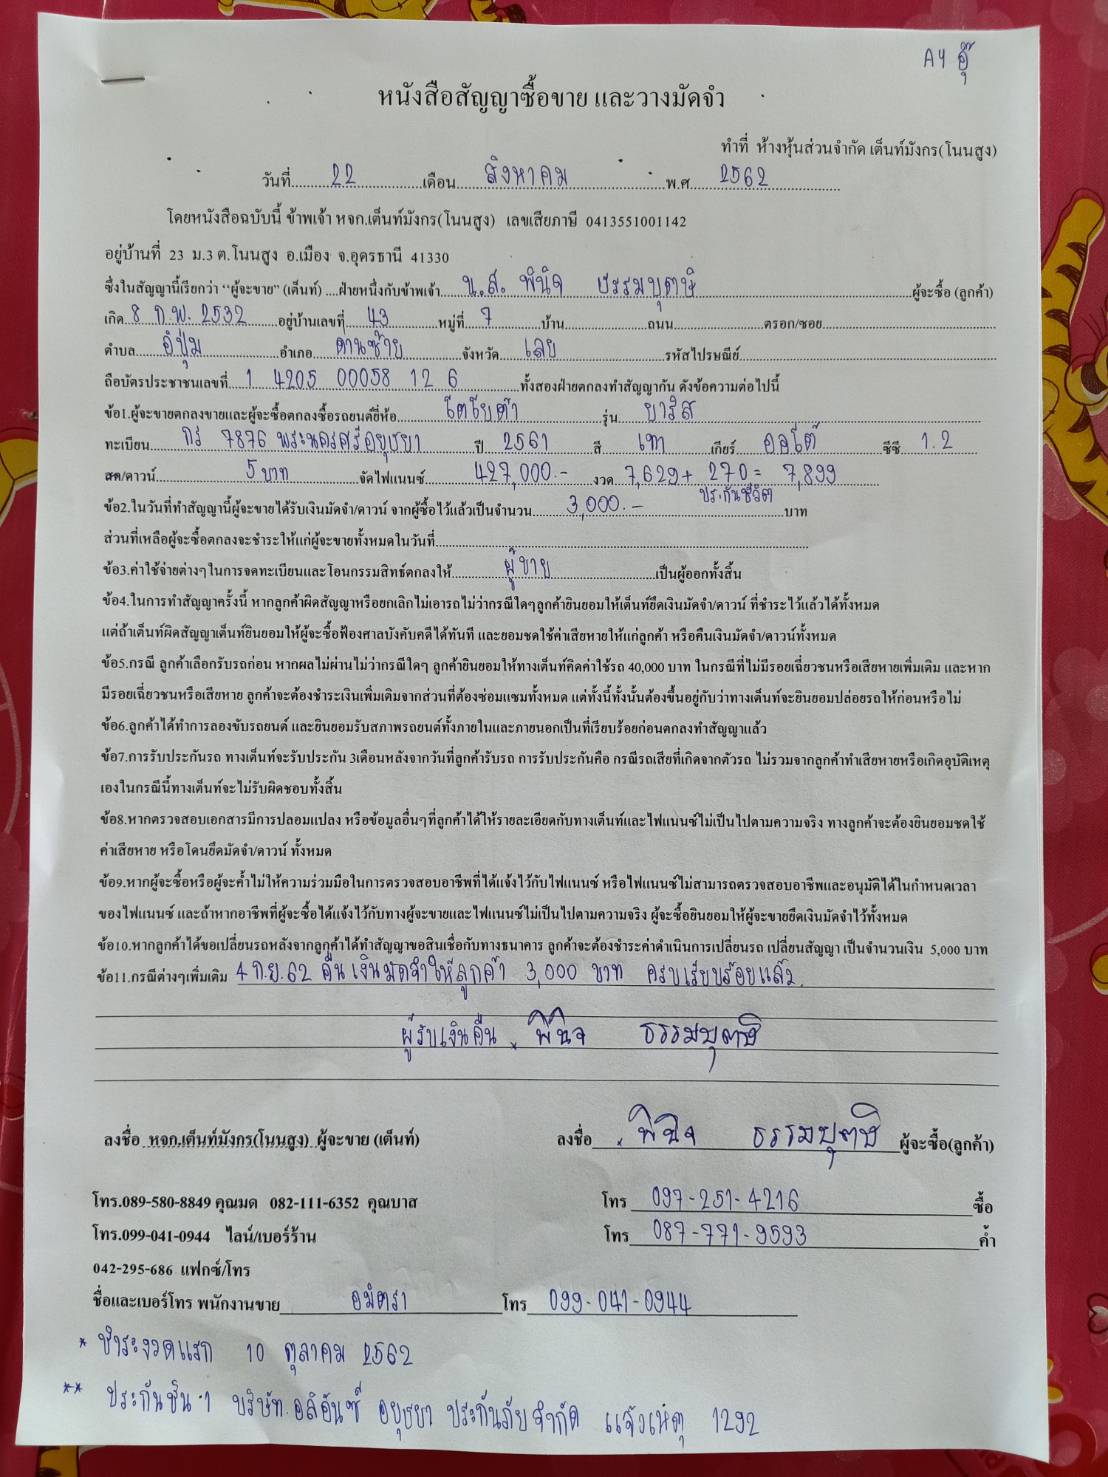 A4 อุ๊
หนังสือสัญญาซื้อขาย และวางมัดจำ
ทำที่ ห้างหุ้นส่วนจำกัด เต็นท์มังกร(โนนสูง)
วันที่ 22 เดือน สิงหาคม พ.ศ 2562
โดยหนังสือฉบับนี้ ข้าพเจ้า หจก.เต็นท์มังกร(โนนสูง) เลขเสียภาษี 0413551001142
อยู่บ้านที่ 23 ม.3 ต.โนนสูง อ.เมือง จ.อุดรธานี 41330
ซึ่งในสัญญานี้เรียกว่า "ผู้จะขาย" (เต็นท์) ....ฝ่ายหนึ่งกับข้าพเจ้า น.ส. พินิจ ธรรมบุตษิ ผู้จะซื้อ (ลูกค้า)
เกิด 8 ก.พ. 2532 อยู่บ้านเลขที่ 43 หมู่ที่ 7 บ้าน ถนน ตรอก/ซอย
ตำบล อีปุ่ม อำเภอ ด่านซ้าย จังหวัด เลย รหัสไปรษณีย์
ถือบัตรประชาชนเลขที่ 1 4205 00058 12 6 ทั้งสองฝ่ายตกลงทำสัญญากัน ดังข้อความต่อไปนี้
ข้อ1.ผู้จะขายตกลงขายและผู้จะซื้อตกลงซื้อรถยนต์ยี่ห้อ โตโยต้า รุ่น ยาริส
ทะเบียน กร 7876 พระนครศรีอยุธยา ปี 2561 สี เทา เกียร์ ออโต้ ซีซี 1.2
สด/ดาวน์ 5 บาท จัดไฟแนนซ์ 427,000.- งวด 7,629+ 270= 7,899
ประกันชีวิต
ข้อ2.ในวันที่ทำสัญญานี้ผู้จะขายได้รับเงินมัดจำ/ดาวน์ จากผู้ซื้อไว้แล้วเป็นจำนวน 3,000.- บาท
ส่วนที่เหลือผู้จะซื้อตกลงจะชำระให้แก่ผู้จะขายทั้งหมดในวันที่
ข้อ3.ค่าใช้จ่ายต่างๆในการจดทะเบียนและโอนกรรมสิทธ์ตกลงให้ ผู้ขาย เป็นผู้ออกทั้งสิ้น
ข้อ4.ในการทำสัญญาครั้งนี้ หากลูกค้าผิดสัญญาหรือยกเลิกไม่เอารถไม่ว่ากรณีใดๆลูกค้ายินยอมให้เต็นท์ยึดเงินมัดจำ/ดาวน์ ที่ชำระไว้แล้วได้ทั้งหมด
แต่ถ้าเต็นท์ผิดสัญญาเต็นท์ยินยอมให้ผู้จะซื้อฟ้องศาลบังคับคดีได้ทันที และยอมชดใช้ค่าเสียหายให้แก่ลูกค้า หรือคืนเงินมัดจำ/ดาวน์ทั้งหมด
ข้อ5.กรณี ลูกค้าเลือกรับรถก่อน หากผลไม่ผ่านไม่ว่ากรณีใดๆ ลูกค้ายินยอมให้ทางเต็นท์คิดค่าใช้รถ 40,000 บาท ในกรณีที่ไม่มีรอยเฉี่ยวชนหรือเสียหายเพิ่มเติม และหาก
มีรอยเฉี่ยวชนหรือเสียหาย ลูกค้าจะต้องชำระเงินเพิ่มเติมจากส่วนที่ต้องซ่อมแซมทั้งหมด แต่ทั้งนี้ทั้งนั้นต้องขึ้นอยู่กับว่าทางเต็นท์จะยินยอมปล่อยรถให้ก่อนหรือไม่
ข้อ6.ลูกค้าได้ทำการลองขับรถยนต์ และยินยอมรับสภาพรถยนต์ทั้งภายในและภายนอกเป็นที่เรียบร้อยก่อนตกลงทำสัญญาแล้ว
ข้อ7.การรับประกันรถ ทางเต็นท์จะรับประกัน 3เดือนหลังจากวันที่ลูกค้ารับรถ การรับประกันคือ กรณีรถเสียที่เกิดจากตัวรถ ไม่รวมจากลูกค้าทำเสียหายหรือเกิดอุบัติเหตุ
เองในกรณีนี้ทางเต็นท์จะไม่รับผิดชอบทั้งสิ้น
ข้อ8.หากตรวจสอบเอกสารมีการปลอมแปลง หรือข้อมูลอื่นๆที่ลูกค้าได้ให้รายละเอียดกับทางเต็นท์และไฟแนนซ์ไม่เป็นไปตามความจริง ทางลูกค้าจะต้องยินยอมชดใช้
ค่าเสียหาย หรือโดนยึดมัดจำ/ดาวน์ ทั้งหมด
ข้อ9.หากผู้จะซื้อหรือผู้จะค้ำไม่ให้ความร่วมมือในการตรวจสอบอาชีพที่ได้แจ้งไว้กับไฟแนนซ์ หรือไฟแนนซ์ไม่สามารถตรวจสอบอาชีพและอนุมัติได้ในกำหนดเวลา
ของไฟแนนซ์ และถ้าหากอาชีพที่ผู้จะซื้อได้แจ้งไว้กับทางผู้จะขายและไฟแนนซ์ไม่เป็นไปตามความจริง ผู้จะซื้อยินยอมให้ผู้จะขายยึดเงินมัดจำไว้ทั้งหมด
ข้อ10.หากลูกค้าได้ขอเปลี่ยนรถหลังจากลูกค้าได้ทำสัญญาขอสินเชื่อกับทางธนาคาร ลูกค้าจะต้องชำระค่าดำเนินการเปลี่ยนรถ เปลี่ยนสัญญา เป็นจำนวนเงิน 5,000 บาท
ข้อ11.กรณีต่างๆเพิ่มเติม 4 ก.ย. 62 คืนเงินมัดจำให้ลูกค้า 3,000 บาท ครบเรียบร้อยแล้ว.
ผู้รับเงินคืน x พินิจ ธรรมบุตษิ
ลงชื่อ หจก.เต็นท์มังกร(โนนสูง) ผู้จะขาย (เต็นท์) ลงชื่อ x พินิจ ธรรมบุตษิ ผู้จะซื้อ(ลูกค้า)
โทร.089-580-8849 คุณมด 082-111-6352 คุณบาส โทร 097-251-4216 ซื้อ
โทร.099-041-0944 ไลน์/เบอร์ร้าน โทร 087-771-9593 ค้ำ
042-295-686 แฟกซ์/โทร
ชื่อและเบอร์โทร พนักงานขาย อมิตรา โทร 099-041-0944
* ชำระงวดแรก 10 ตุลาคม 2562
** ประกันชั้น 1 บริษัท อลิอันซ์ อยุธยา ประกันภัย จำกัด แจ้งเหตุ 1292